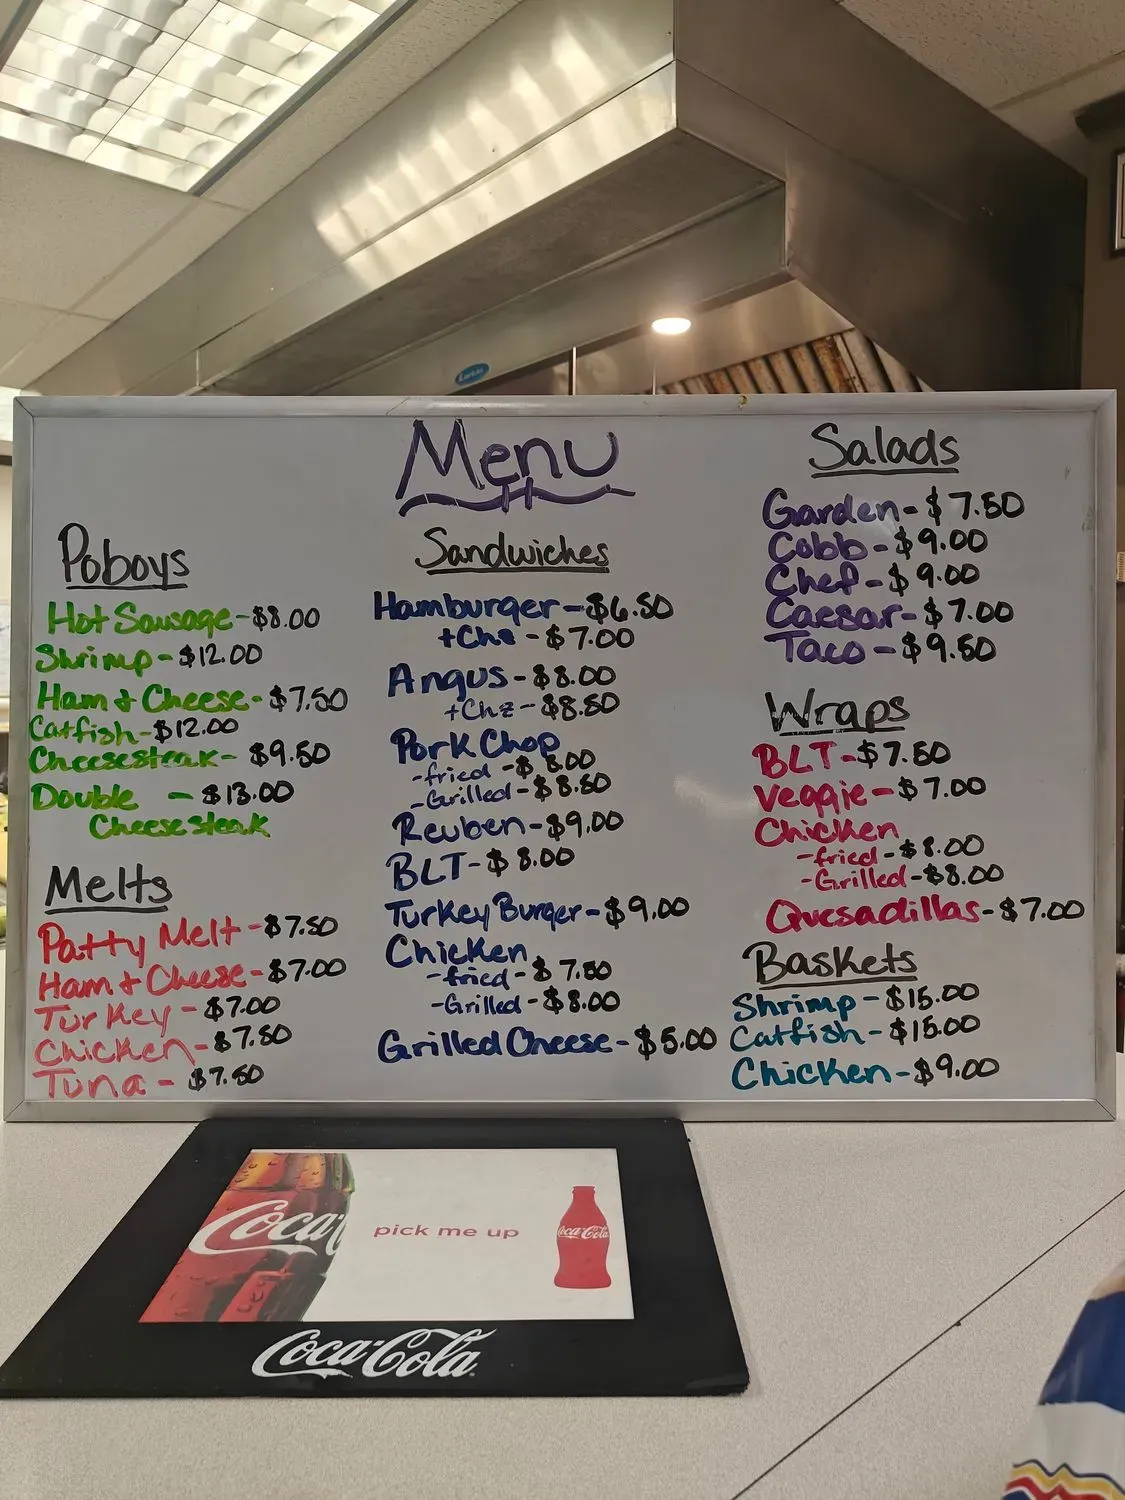 Menu
Poboys
Hot Sausage-$8.00
Shrimp-$12.00
Ham & Cheese-$7.50
Catfish-$12.00
Cheesesteak-$9.50
Double -$13.00
Cheesesteak
Melts
Patty Melt-$7.50
Ham & Cheese-$7.00
Turkey-$7.00
Chicken-$7.50
Tuna-$7.50
Sandwiches
Hamburger-$6.50
+Chz-$7.00
Angus-$8.00
+Chz-$8.50
Pork Chop
-fried-$8.00
-Grilled-$8.50
Reuben-$9.00
BLT-$8.00
Turkey Burger-$9.00
Chicken
-fried-$7.50
-Grilled-$8.00
Grilled Cheese-$5.00
Salads
Garden-$7.50
Cobb-$9.00
Chef-$9.00
Caesar-$7.00
Taco-$9.50
Wraps
BLT-$7.50
Veggie-$7.00
Chicken
-fried-$8.00
-Grilled-$8.00
Quesadillas-$7.00
Baskets
Shrimp-$15.00
Catfish-$15.00
Chicken-$9.00
pick me up
Coca-Cola
Coca-Cola